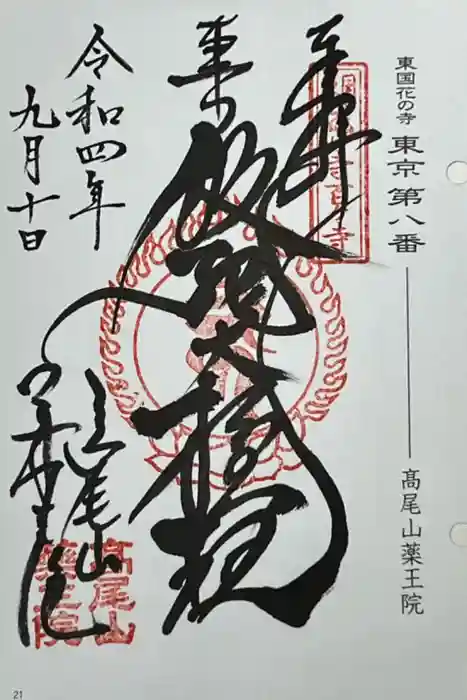 東国花の寺 東京 第八番
高尾山薬王院
奉拝
飯縄大権現
令和四年
九月十日
高尾山
薬王院
高尾山
薬王院
21